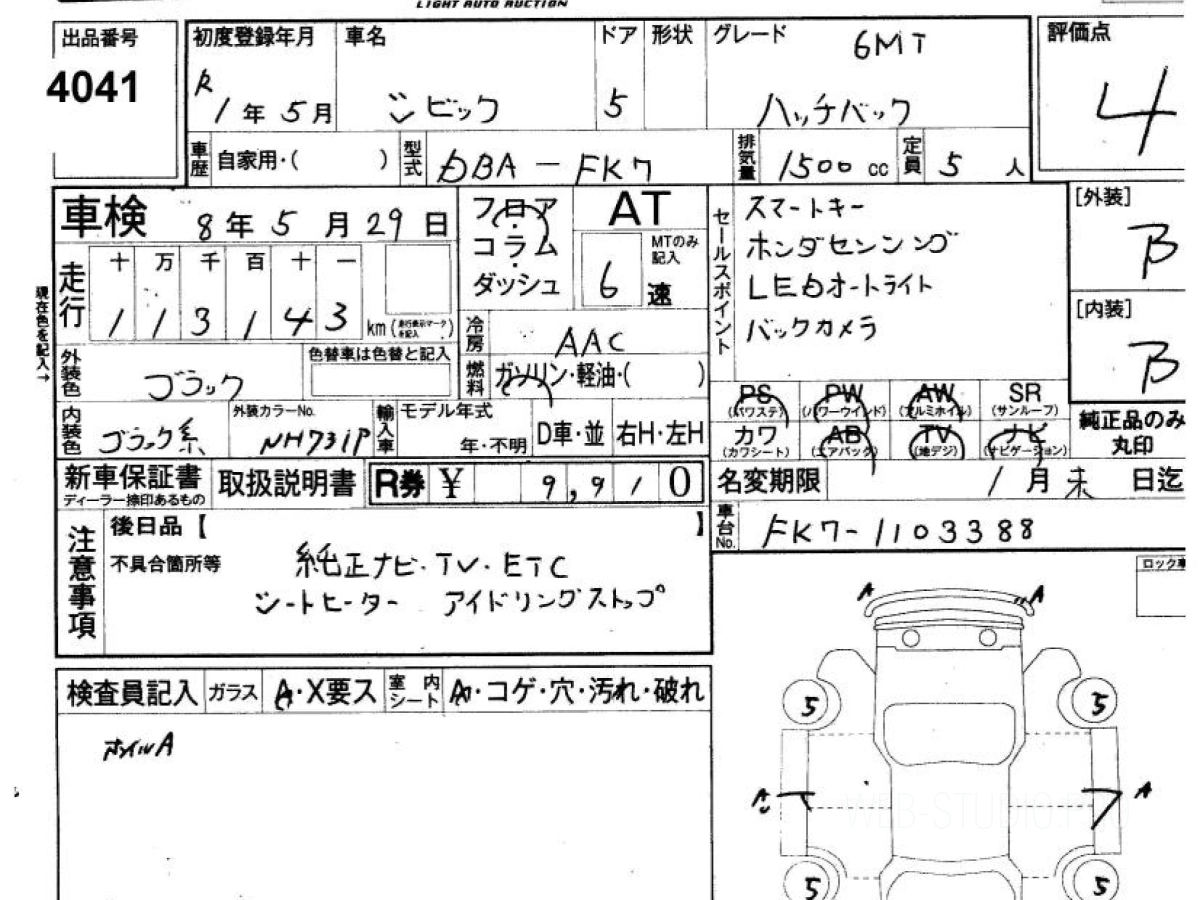 LIGHT AUTO AUCTION
出品番号
4041
初度登録年月
R1年5月
車名
シビック
ドア
5
形状
グレード
6MT
ハッチバック
評価点
4
車歴
自家用・( )
型式
DBA-FK7
排気量
1500cc
定員
5人
車検
8年5月29日
フロア
コラム
ダッシュ
AT
MTのみ記入
6速
セールスポイント
スマートキー
ホンダセンシング
LEDオートライト
バックカメラ
[外装]
B
[内装]
B
現在色を記入→
走行
十万千百十一
113143km(走行表示マークを記入)
冷房
AAC
燃料
ガソリン・軽油・( )
外装色
ブラック
色替車は色替と記入
内装色
ブラック系
外装カラーNo.
NH731P
輸入車
モデル年式
年・不明
D車・並
右H・左H
PS
(パワステ)
PW
(パワーウインド)
AW
(アルミホイル)
SR
(サンルーフ)
カワ
(カワシート)
AB
(エアバック)
TV
(地デジ)
ナビ
(ナビゲーション)
純正品のみ丸印
新車保証書
ディーラー捺印あるもの
取扱説明書
R券 ¥ 9,910
名変期限
1月末日迄
車台No.
FK7-1103388
注意事項
後日品【 】
不具合箇所等
純正ナビ・TV・ETC
シートヒーター アイドリングストップ
検査員記入
ガラス
A・X要ス
室内シート
A・コゲ・穴・汚れ・破れ
ホイルA
ロック車
A A
5 5
A A
5 5
WEB-STUDIO.PRO